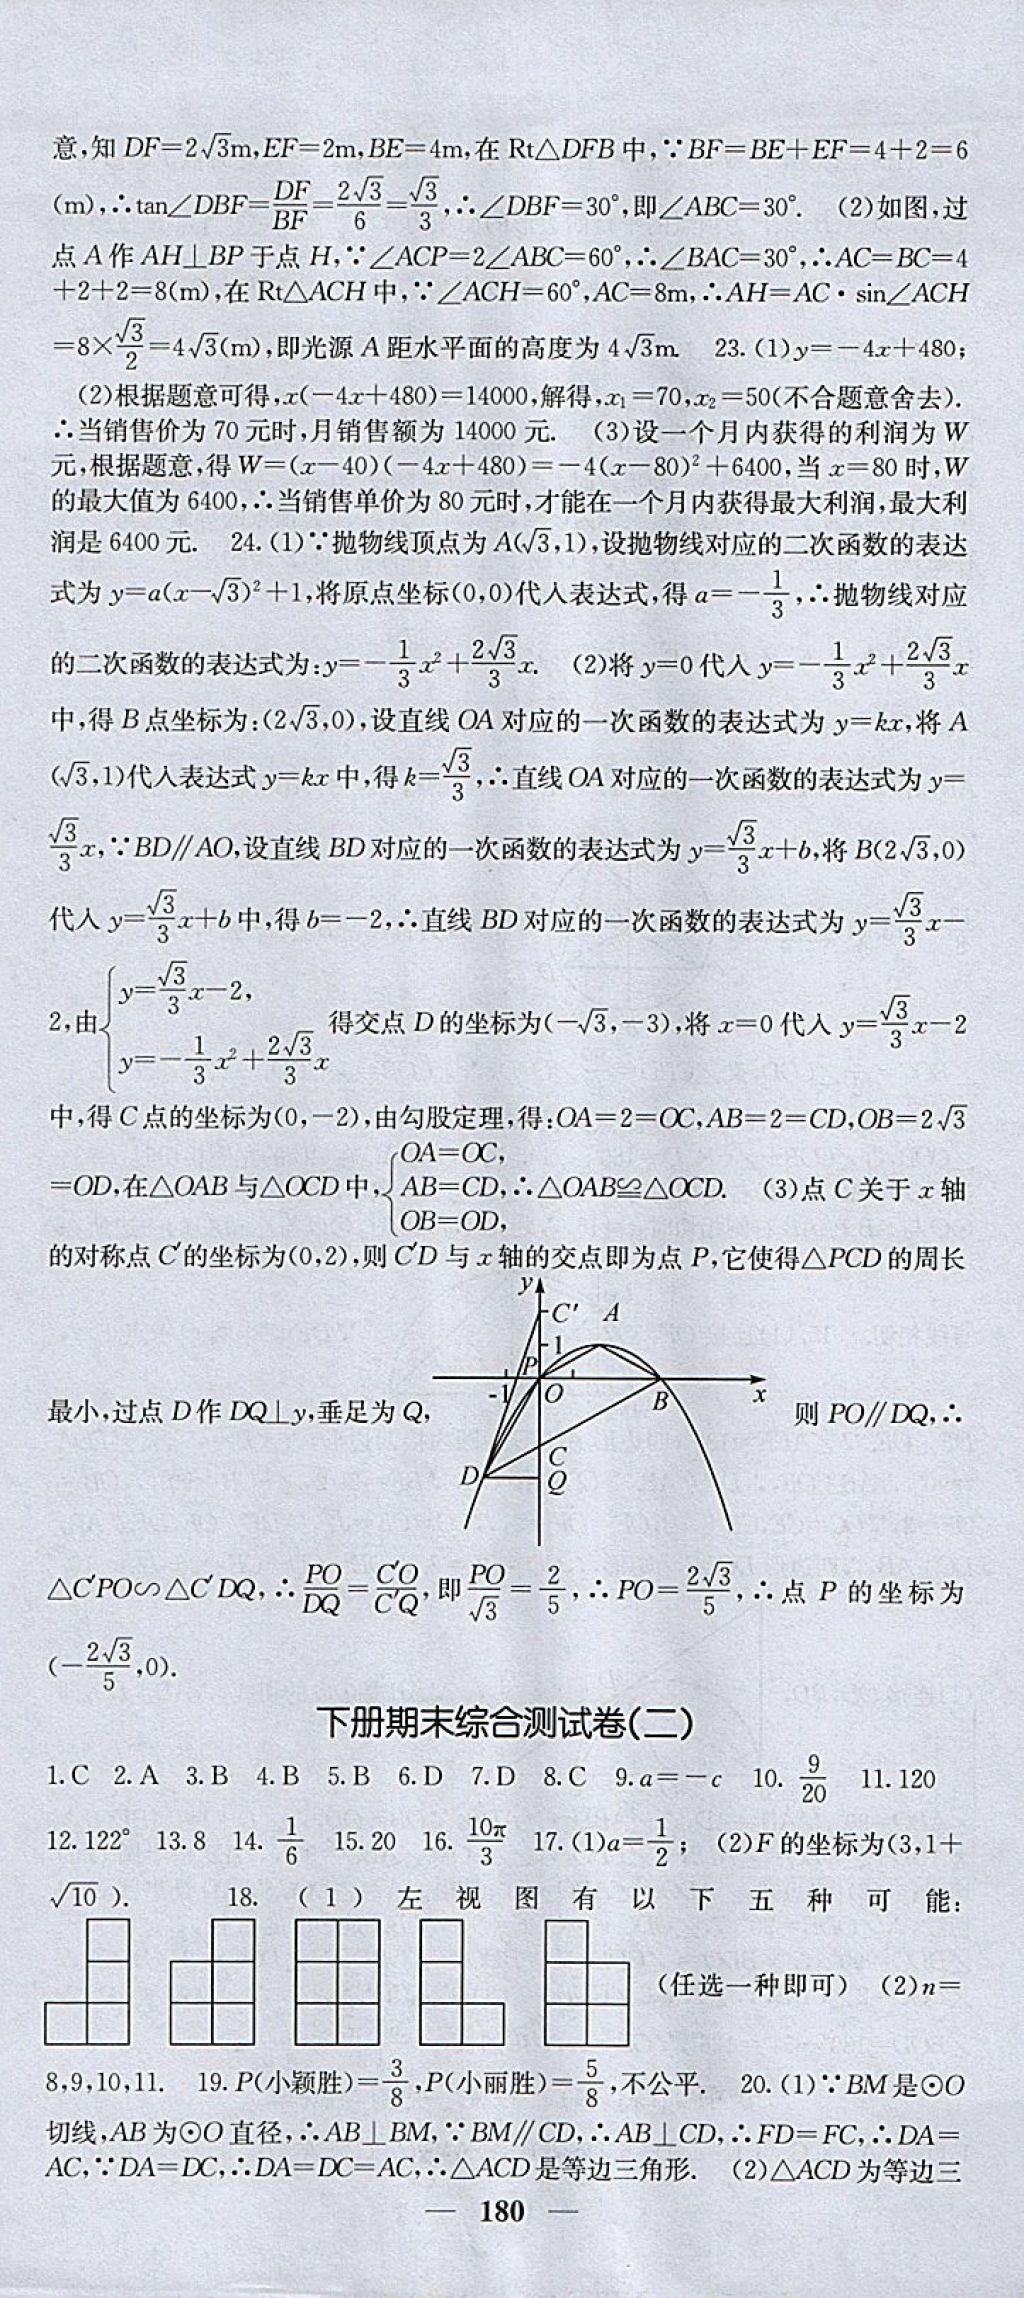 意,知 DF=2√3m,EF=2m,BE=4m,在 Rt△DFB 中,∵BF=BE+EF=4+2=6
(m),∴tan∠DBF=DF/BF=2√3/6=√3/3,∴∠DBF=30°,即∠ABC=30°. (2)如图,过
点 A 作 AH⊥BP 于点 H,∵∠ACP=2∠ABC=60°,∴∠BAC=30°,∴AC=BC=4
+2+2=8(m),在 Rt△ACH 中,∵∠ACH=60°,AC=8m,∴AH=AC·sin∠ACH
=8×√3/2=4√3(m),即光源 A 距水平面的高度为 4√3m. 23.(1)y=-4x+480;
(2)根据题意可得,x(-4x+480)=14000,解得,x₁=70,x₂=50(不合题意舍去).
∴当销售价为 70 元时,月销售额为 14000 元. (3)设一个月内获得的利润为 W
元,根据题意,得 W=(x-40)(-4x+480)=-4(x-80)²+6400,当 x=80 时,W
的最大值为 6400,∴当销售单价为 80 元时,才能在一个月内获得最大利润,最大利
润是 6400 元. 24.(1)∵抛物线顶点为 A(√3,1),设抛物线对应的二次函数的表达
式为 y=a(x-√3)²+1,将原点坐标(0,0)代入表达式,得 a=-1/3,∴抛物线对应
的二次函数的表达式为:y=-1/3x²+2√3/3x. (2)将 y=0 代入 y=-1/3x²+2√3/3x
中,得 B 点坐标为:(2√3,0),设直线 OA 对应的一次函数的表达式为 y=kx,将 A
(√3,1)代入表达式 y=kx 中,得 k=√3/3,∴直线 OA 对应的一次函数的表达式为 y=
√3/3x,∵BD∥AO,设直线 BD 对应的一次函数的表达式为 y=√3/3x+b,将 B(2√3,0)
代入 y=√3/3x+b 中,得 b=-2,∴直线 BD 对应的一次函数的表达式为 y=√3/3x-
2,由{y=√3/3x-2, y=-1/3x²+2√3/3x 得交点 D 的坐标为(-√3,-3),将 x=0 代入 y=√3/3x-2
中,得 C 点的坐标为(0,-2),由勾股定理,得:OA=2=OC,AB=2=CD,OB=2√3
=OD,在△OAB 与△OCD 中,{OA=OC, AB=CD, OB=OD, ∴△OAB≌△OCD. (3)点 C 关于 x 轴
的对称点 C′的坐标为(0,2),则 C′D 与 x 轴的交点即为点 P,它使得△PCD 的周长
y
C′ A
1
P
-1 O B x
最小,过点 D 作 DQ⊥y,垂足为 Q, 则 PO∥DQ,∴
C
D Q
△C′PO∽△C′DQ,∴PO/DQ=C′O/C′Q,即PO/√3=2/5,∴PO=2√3/5,∴点 P 的坐标为
(-2√3/5,0).
下册期末综合测试卷(二)
1.C 2.A 3.B 4.B 5.B 6.D 7.D 8.C 9.a=-c 10.9/20 11.120
12.122° 13.8 14.1/6 15.20 16.10π/3 17.(1)a=1/2; (2)F 的坐标为(3,1+
√10). 18.(1)左视图有以下五种可能:
(任选一种即可) (2)n=
8,9,10,11. 19.P(小颖胜)=3/8,P(小丽胜)=5/8,不公平. 20.(1)∵BM 是⊙O
切线,AB 为⊙O 直径,∴AB⊥BM,∵BM∥CD,∴AB⊥CD,∴FD=FC,∴DA=
AC,∵DA=DC,∴DA=DC=AC,∴△ACD 是等边三角形. (2)△ACD 为等边三
— 180 —